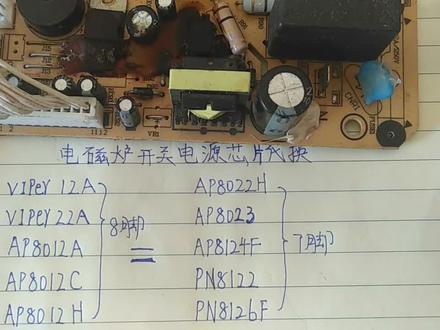 电磁炉开关电源芯片代换
VIPer 12A
VIPer 22A
AP8012A
AP8012C
AP8012H
8脚
=
AP8022H
AP8023
AP8124F
PN8122
PN8126F
7脚